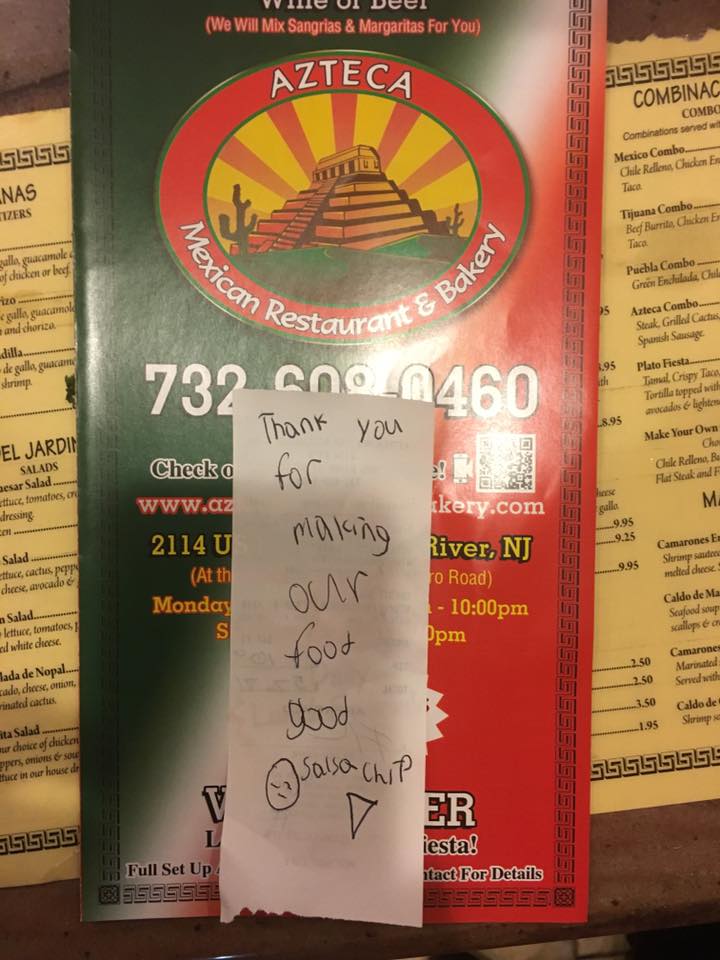 Wine or Beer
(We Will Mix Sangrias & Margaritas For You)
AZTECA
Mexican Restaurant & Bakery
732 608-0460
Thank you
for
making
our
food
good
salsa chip
Check
www.az
kery.com
2114 U
River, NJ
(At th
ro Road)
Monday
- 10:00pm
S
0pm
ER
iesta!
Full Set Up
ntact For Details
ANAS
TIZERS
gallo, guacamole
of chicken or beef.
rizo
gallo, guacamole
and chorizo.
dilla
de gallo, guacam
shrimp.
DEL JARDIN
SALADS
aesar Salad
ettuce, tomatoes, cro
dressing.
en
Salad
ettuce, cactus, pepp
cheese, avocado &
n Salad
lettuce, tomatoes, p
ed white cheese.
lada de Nopal
cado, cheese, onion,
rinated cactus.
ita Salad
ur choice of chicken
ppers, onions & sou
ttuce in our house dr
COMBINAC
COMBO
Combinations served wit
Mexico Combo
Chile Relleno, Chicken En
Taco.
Tijuana Combo
Beef Burrito, Chicken E
Taco.
Puebla Combo
Green Enchilada, Chil
95
Azteca Combo
Steak, Grilled Cactus,
Spanish Sausage.
Plato Fiesta
Tamal, Crispy Taco,
Tortilla topped with
avocados & lighten
8.95
Make Your Own
Cho
Chile Relleno, Ba
Flat Steak and F
heese
gallo.
9.95
9.25
9.95
MA
Camarones En
Shrimp sautee
melted cheese. S
Caldo de Ma
Seafood soup
scallops & cr
Camarones
Marinated
Served with
2.50
2.50
3.50
1.95
Caldo de
Shrimp s